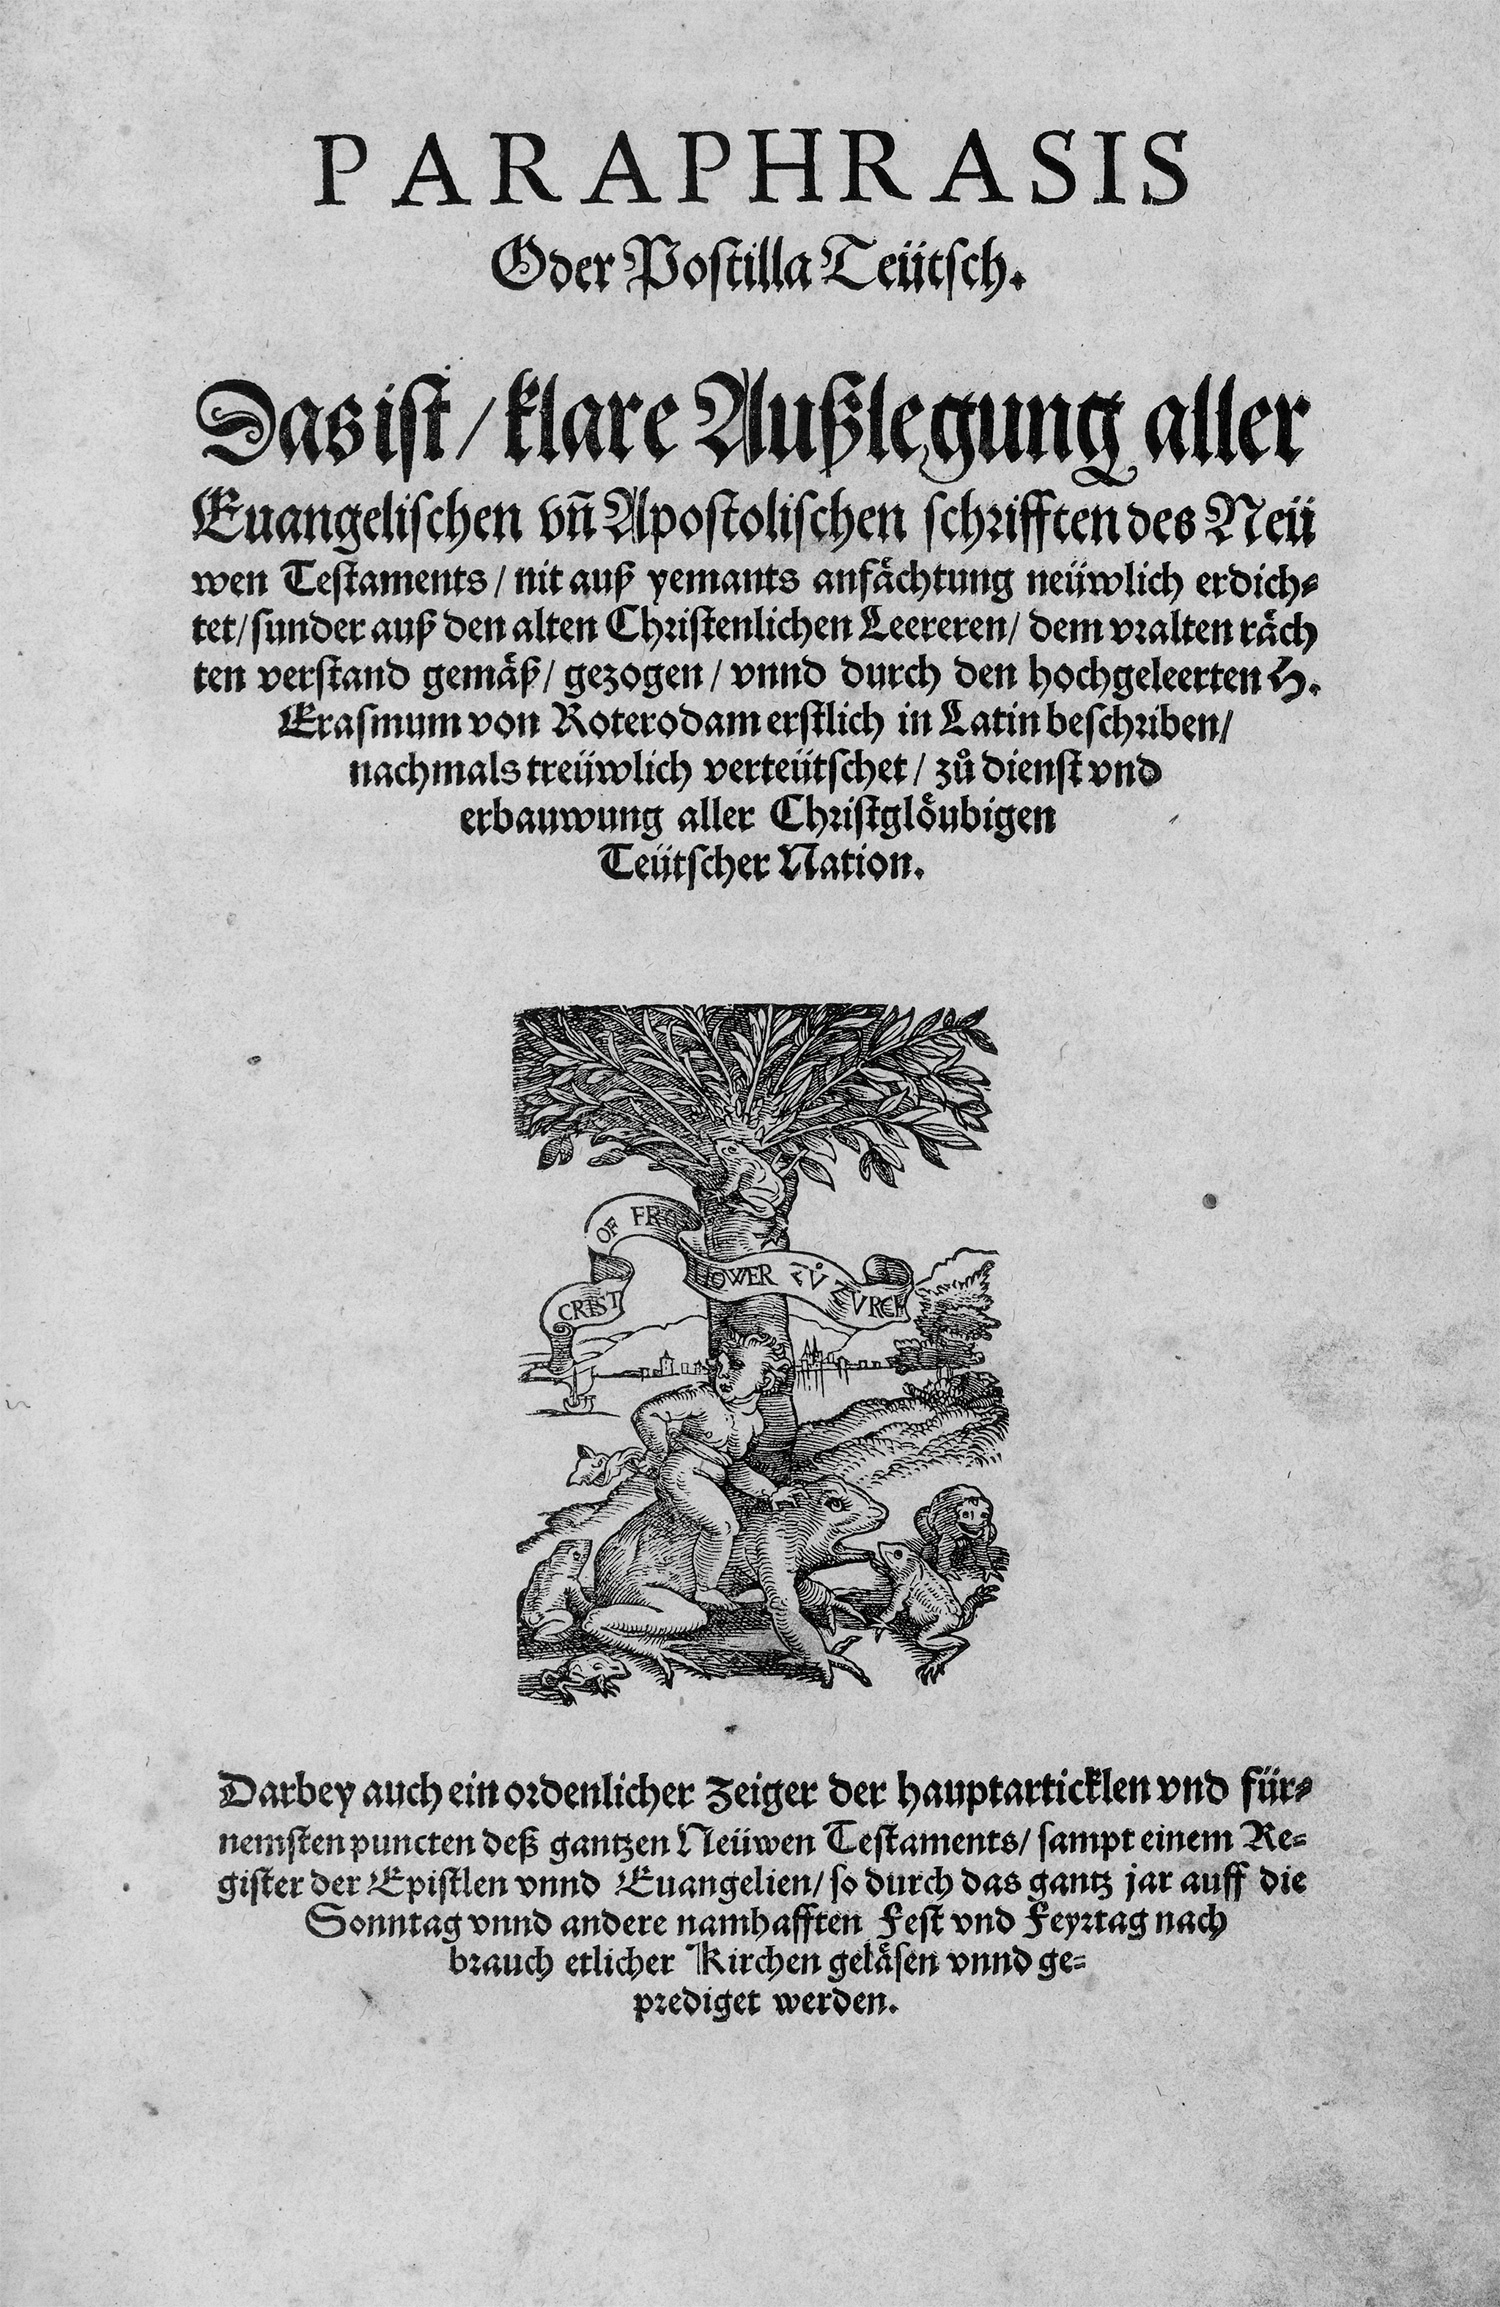 PARAPHRASIS
Oder Postilla Teütsch.
Das ist / klare Außlegung aller
Euangelischen vñ Apostolischen schrifften des Neü
wen Testaments / nit auß yemants anfächtung neüwlich erdich⸗
tet / sunder auß den alten Christenlichen Leereren / dem vralten räch
ten verstand gemäß / gezogen / vnnd durch den hochgeleerten H.
Erasmum von Roterodam erstlich in Latin beschriben /
nachmals treüwlich verteütschet / zů dienst vnd
erbauwung aller Christglöubigen
Teütscher Nation.
CRIST OF FRO HOWER ZŮ ZVRCH
Darbey auch ein ordenlicher Zeiger der hauptarticklen vnd für⸗
nemsten puncten deß gantzen Neüwen Testaments / sampt einem Re⸗
gister der Epistlen vnnd Euangelien / so durch das gantz jar auff die
Sonntag vnnd andere namhafften Fest vnd Feyrtag nach
brauch etlicher Kirchen geläsen vnnd ge⸗
prediget werden.